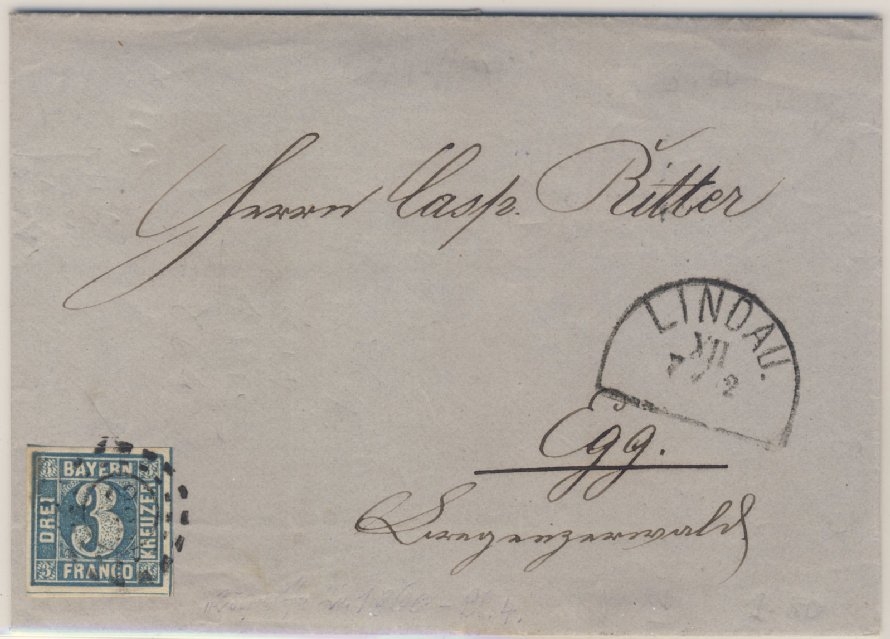 Herrn Casp. Ritter
LINDAU.
VII
7 2
Egg.
Bregenzerwald
BAYERN
DREI
3
KREUZER
FRANCO